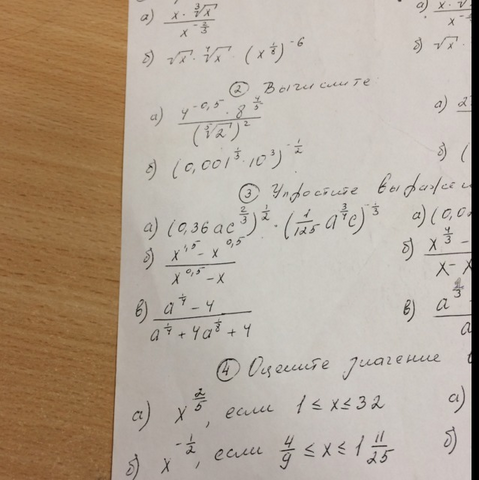 а) (x · ∛x) / x^(-2/3) а) x ·
б) √x · ⁷√x · (x^(1/8))^(-6) б) √x ·
② Вычислите
а) (4^(-0,5) · 8^(4/5)) / (⁵√2)² а) 2
б) (0,001^(1/3) · 10³)^(-1/2) б) (
③ Упростите выражен
а) (0,36 a c^(2/3))^(1/2) · (1/125 a^(3/4) c)^(-1/3) а) (0,0
б) (x^(1,5) - x^(0,5)) / (x^(0,5) - x) б) (x^(4/3) -) / (x - x)
в) (a^(1/4) - 4) / (a^(1/4) + 4a^(1/8) + 4) в) a
④ Оцените значение
а) x^(2/5), если 1 ≤ x ≤ 32 а)
б) x^(-1/2), если 4/9 ≤ x ≤ 1 11/25 б)